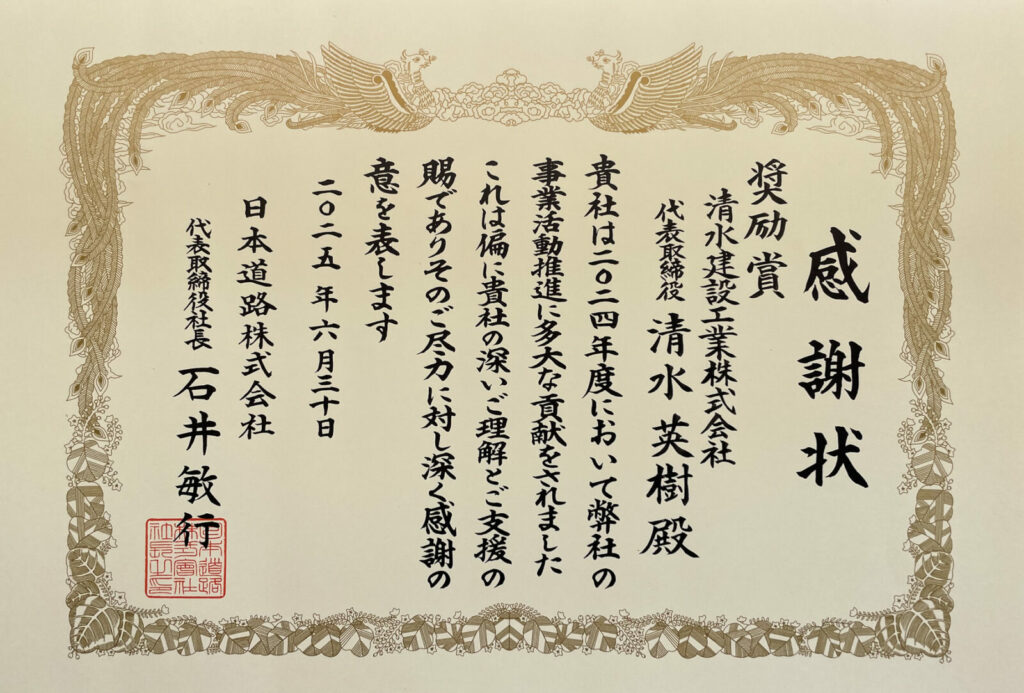 感謝状
奨励賞
清水建設工業株式会社
代表取締役 清水英樹殿
貴社は二〇二四年度において弊社の
事業活動推進に多大な貢献をされました
これは偏に貴社の深いご理解とご支援の
賜でありそのご尽力に対し深く感謝の
意を表します
二〇二五年六月三十日
日本道路株式会社
代表取締役社長 石井敏行
日本道路
株式會社
社長之印